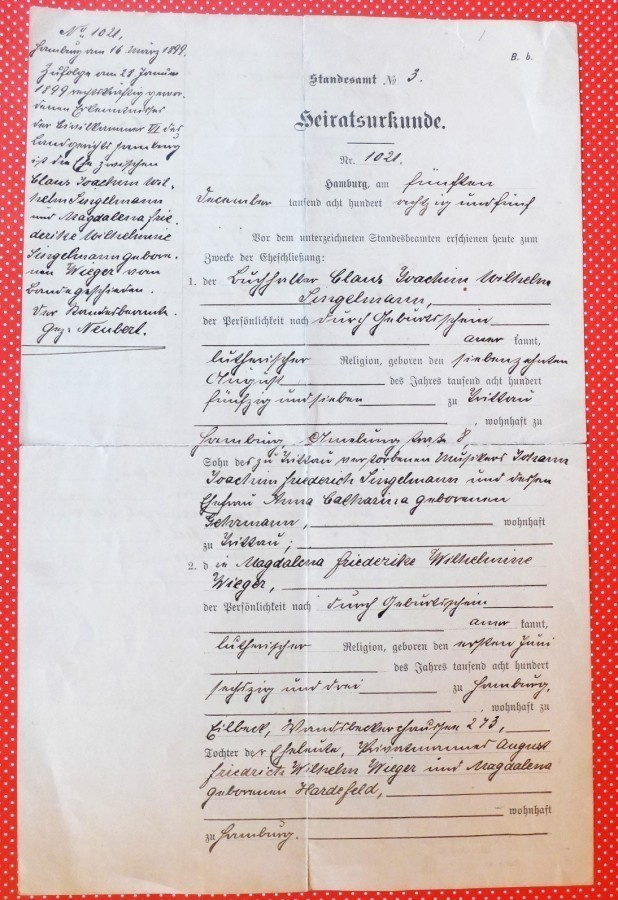 No 1021.
Hamburg am 16 März 1899.
Zufolge am 28 Januar
1899 rechtskräftig gewor-
denen Erkenntnisses
der Civilkammer VI des
Landgerichts Hamburg
ist die Ehe zwischen
Claus Joachim Wil-
helm Singelmann
und Magdalena Frie-
derike Wilhelmine
Singelmann gebore-
nen Wieger vom
Bande geschieden.
Der Standesbeamte.
gez. Neubert.
B. b.
Standesamt No 3.
Heiratsurkunde.
Nr. 1021.
Hamburg, am fünften
December tausend acht hundert achtzig und fünf
Vor dem unterzeichneten Standesbeamten erschienen heute zum
Zwecke der Eheschließung:
1. der Buchhalter Claus Joachim Wilhelm
Singelmann,
der Persönlichkeit nach durch Geburtsschein
aner kannt,
lutherischer Religion, geboren den siebenzehnten
August des Jahres tausend acht hundert
fünfzig und sieben zu Trittau
, wohnhaft zu
Hamburg, Amelung straße 8,
Sohn des zu Trittau verstorbenen Musikers Johann
Joachim Friederich Singelmann und dessen
Ehefrau Anna Catharina geborenen
Gehrmann, wohnhaft
zu Trittau;
2. d ie Magdalena Friederike Wilhelmine
Wieger,
der Persönlichkeit nach durch Geburtsschein
aner kannt,
lutherischer Religion, geboren den ersten Juni
des Jahres tausend acht hundert
sechszig und drei zu Hamburg,
, wohnhaft zu
Eilbeck, Wandsbeckerchaussee 273,
Tochter der Eheleute, Privatmannes August
Friedrich Wilhelm Wieger und Magdalena
geborenen Hardefeld,
wohnhaft
zu Hamburg.